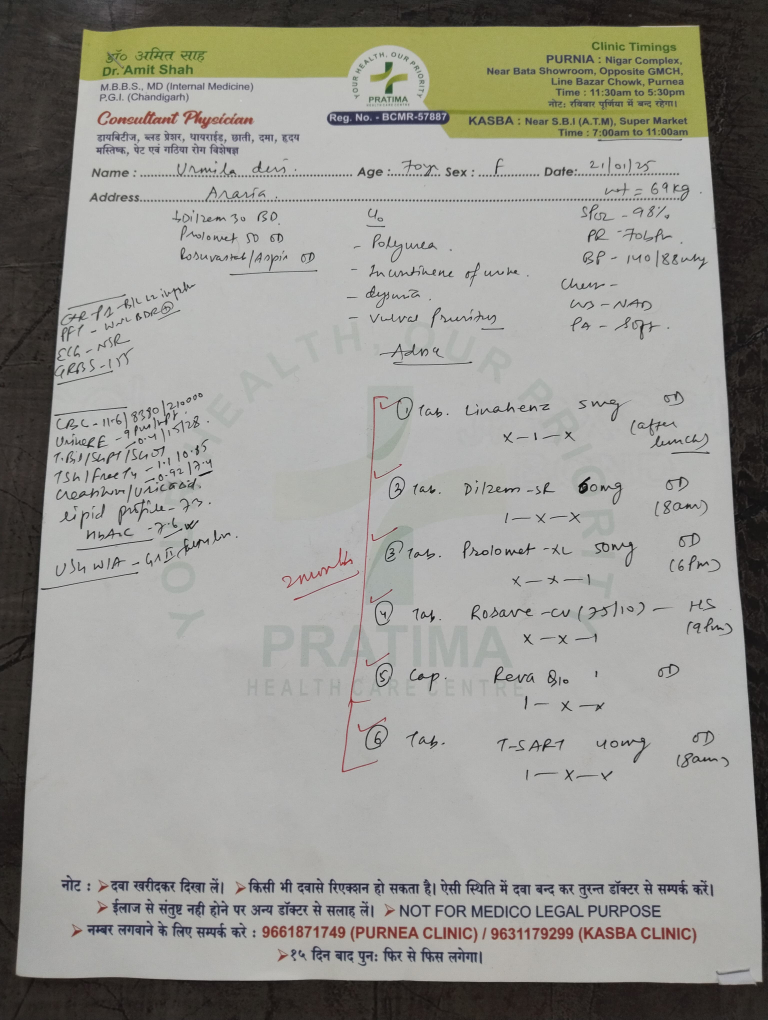 डॉ० अमित साह
Dr. Amit Shah
M.B.B.S., MD (Internal Medicine)
P.G.I. (Chandigarh)
Consultant Physician
डायबिटीज, ब्लड प्रेशर, थायराईड, छाती, दमा, हृदय
मस्तिष्क, पेट एवं गठिया रोग विशेषज्ञ
YOUR HEALTH, OUR PRIORITY
PRATIMA
HEALTH CARE CENTRE
Reg. No. - BCMR-57887
Clinic Timings
PURNIA : Nigar Complex,
Near Bata Showroom, Opposite GMCH,
Line Bazar Chowk, Purnea
Time : 11:30am to 5:30pm
नोट: रविवार पूर्णिया में बन्द रहेगा।
KASBA : Near S.B.I (A.T.M), Super Market
Time : 7:00am to 11:00am
Name : Urmila devi Age : 70yr Sex : F Date: 21/01/25
Address Araria
wt = 69kg
Dilzem 30 BD
Prolomet 50 OD
Rosuvastat/Aspirin OD
C/o
- Polyurea
- Incontinence of urine
- dysuria
- vulval Pruritus
SPO2 - 98%
PR - 70bpm
BP - 140/88mmhg
Chest -
- NAD
PA - Soft
PFT - WNL BDR
ECG - NSR
GRBS - 155
Advice
CBC - 11.6/8380/210000
Urine RE - 9 Pus/hpf
T.Bil/SGPT/SGOT - 0.4/15/28
TSH/Free T4 - 1.1/0.85
Creatinin/Uricacid - 0.92/7.4
lipid profile - 73
HbA1C - 7.6
USG W/A - Gr II
2 months
① Tab. Linahenz 5mg OD
x-1-x (after lunch)
② Tab. Dilzem-SR 60mg OD
1-x-x (8am)
③ Tab. Prolomet-XL 50mg OD
x-x-1 (6Pm)
④ Tab. Rosave-CV (75/10) - HS
x-x-1 (9Pm)
⑤ Cap. Reva Q10 OD
1-x-x
⑥ Tab. T-SART 40mg OD
1-x-x (8am)
YOUR HEALTH, OUR PRIORITY
PRATIMA
HEALTH CARE CENTRE
नोट : ➢दवा खरीदकर दिखा लें। ➢किसी भी दवासे रिएक्शन हो सकता है। ऐसी स्थिति में दवा बन्द कर तुरन्त डॉक्टर से सम्पर्क करें।
➢ईलाज से संतुष्ट नही होने पर अन्य डॉक्टर से सलाह लें। ➢NOT FOR MEDICO LEGAL PURPOSE
➢नम्बर लगवाने के लिए सम्पर्क करे : 9661871749 (PURNEA CLINIC) / 9631179299 (KASBA CLINIC)
➢१५ दिन बाद पुनः फिर से फिस लगेगा।